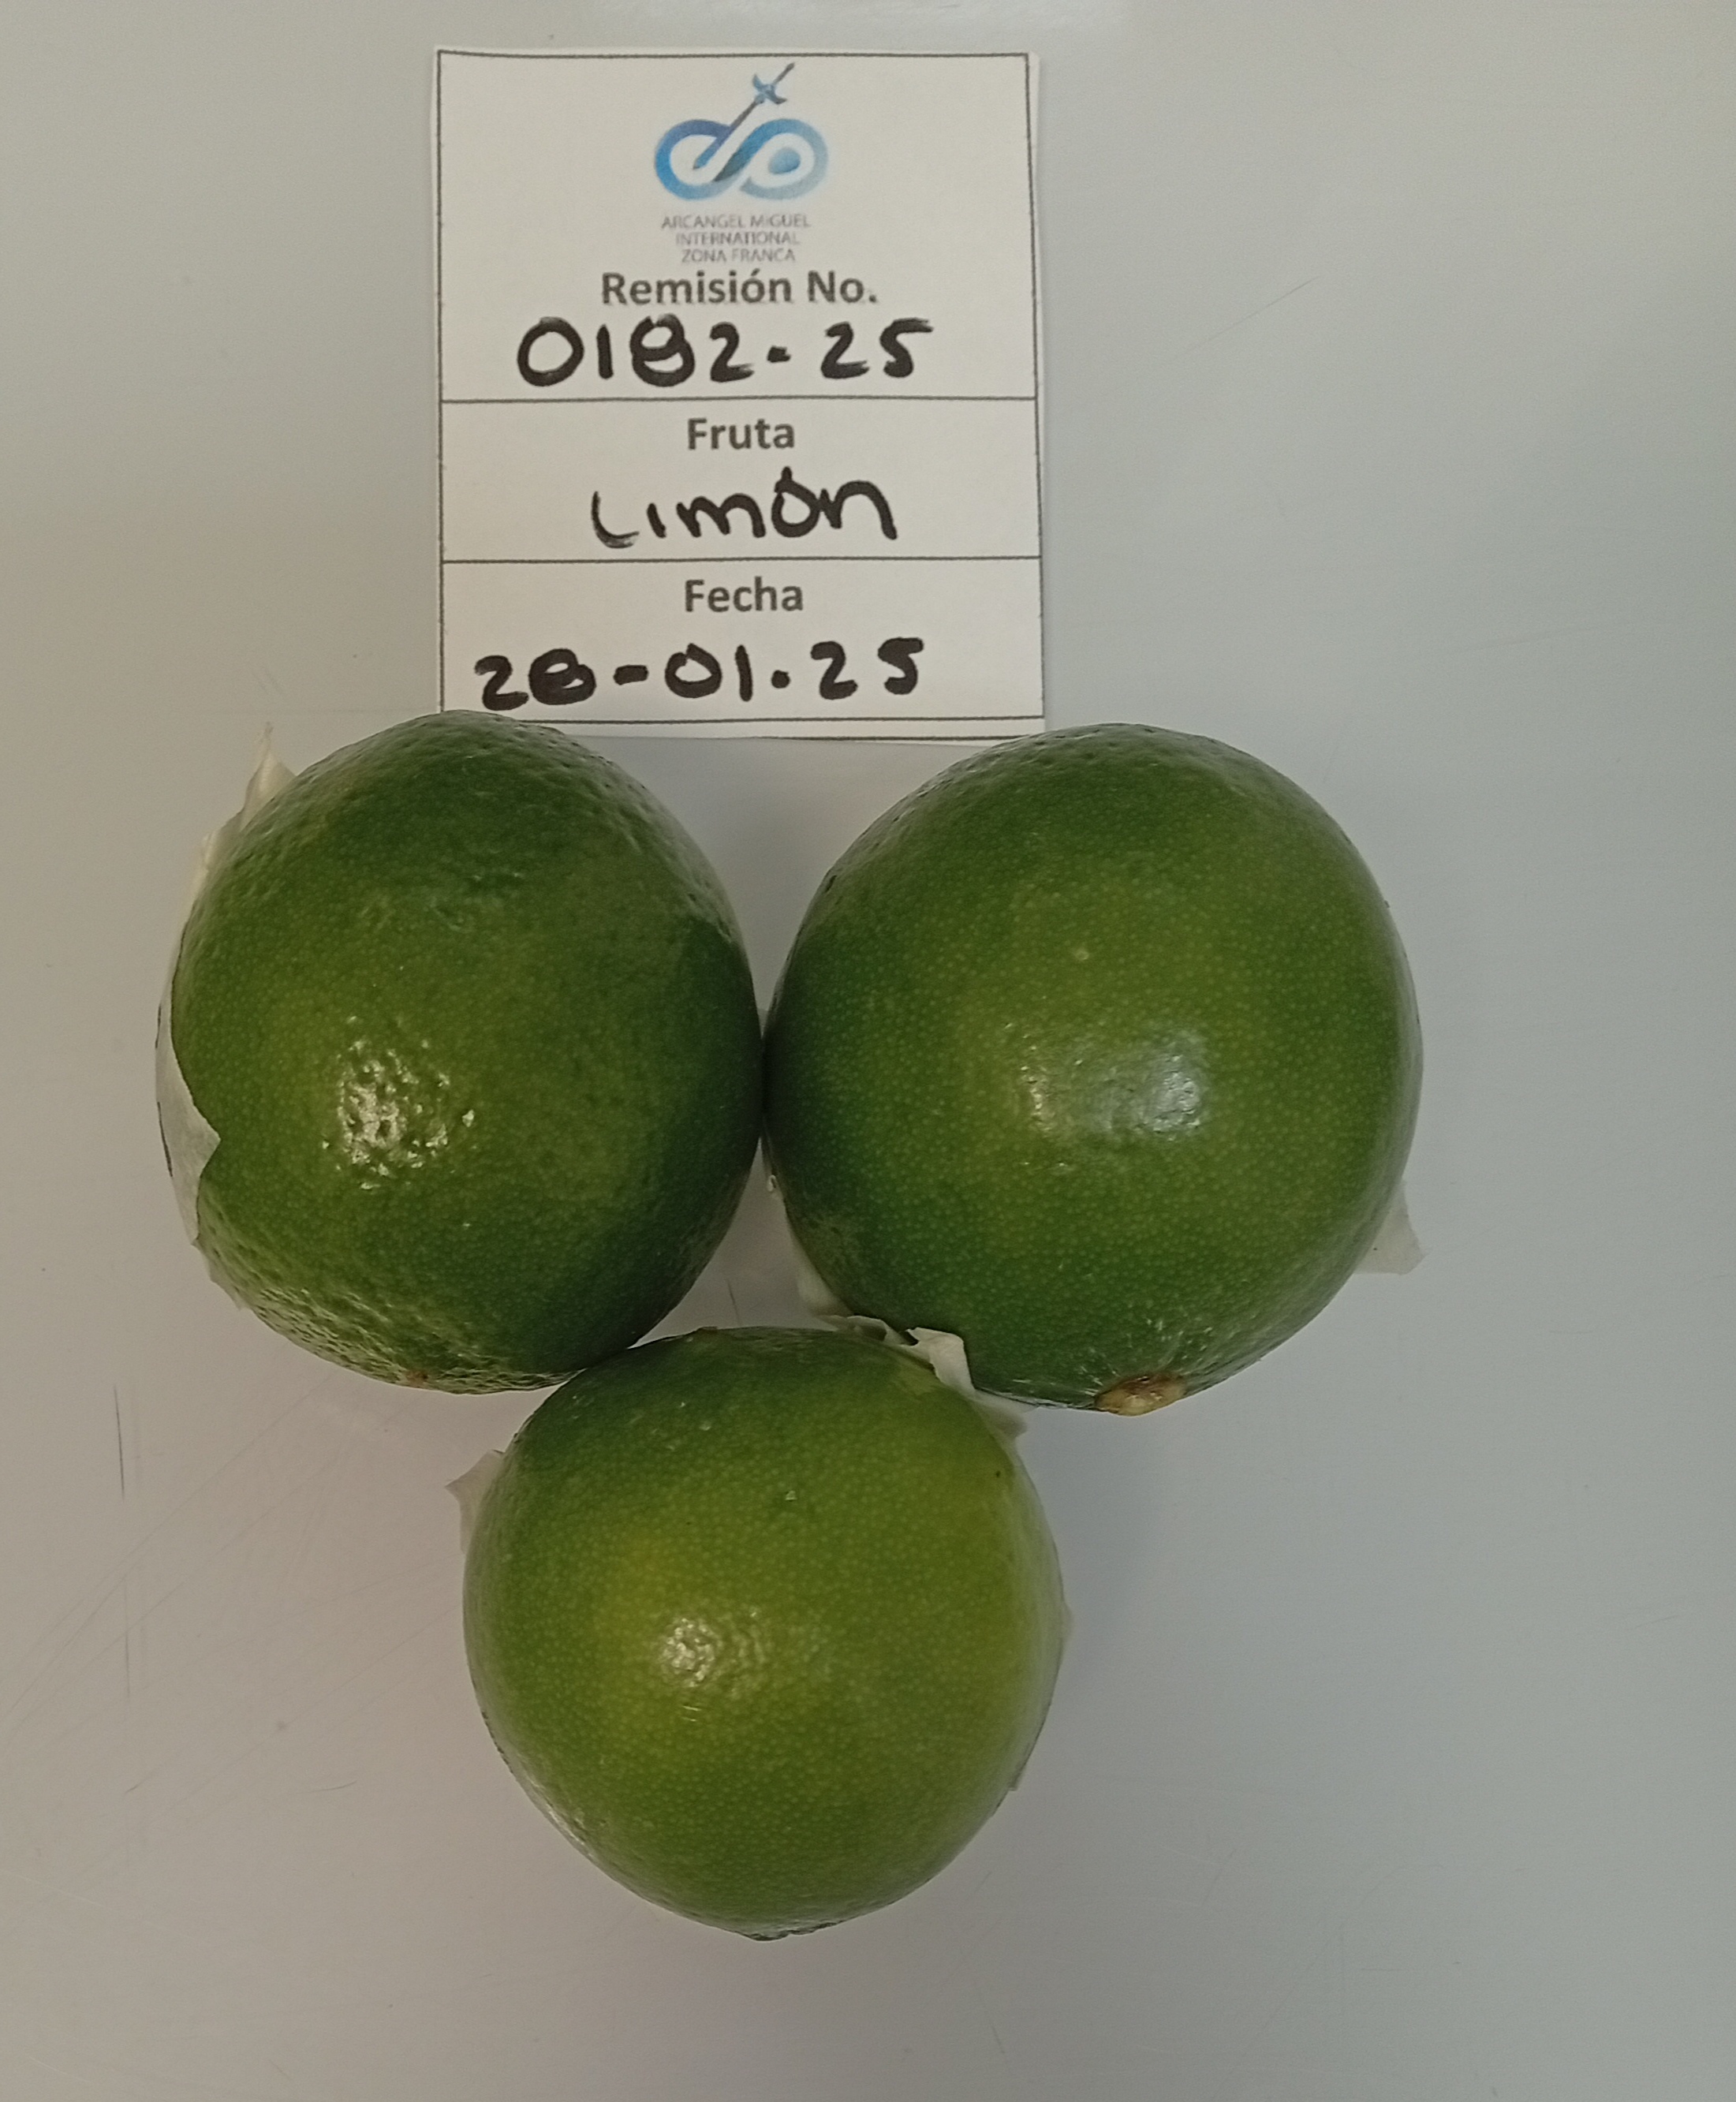 ARCANGEL MIGUEL
INTERNATIONAL
ZONA FRANCA
Remisión No.
0182-25
Fruta
Limón
Fecha
28-01.25